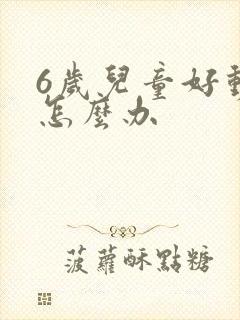 6歲兒童好動
怎麼办
菠蘿酥點糖